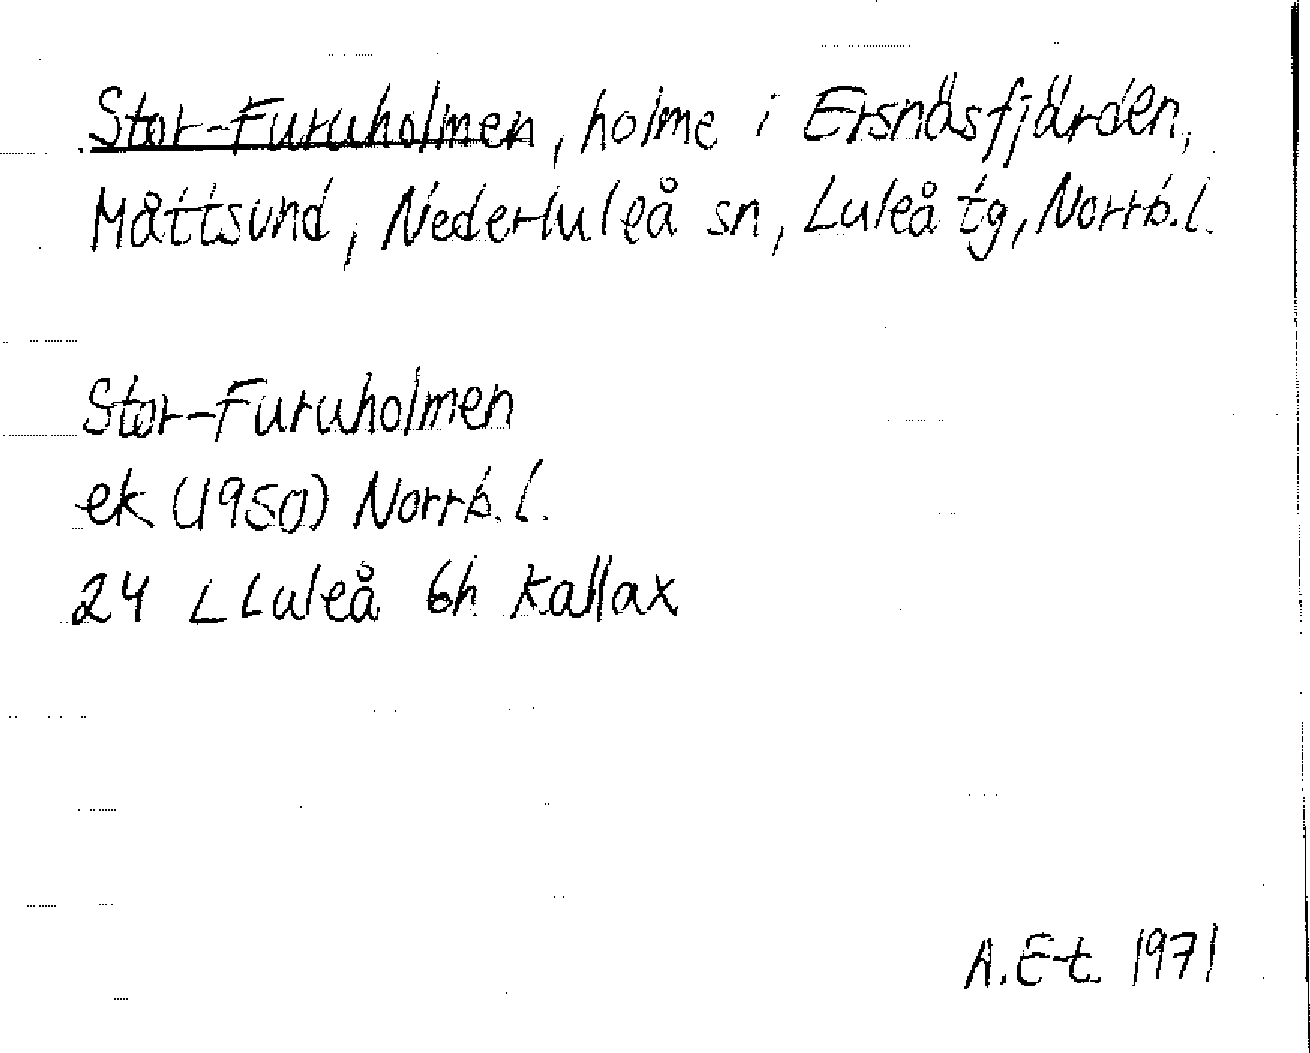 Stor-Furuholmen, holme i Ersnäsfjärden,
Måttsund, Nederluleå sn, Luleå tg, Norrb.l.
Stor-Furuholmen
ek (1950) Norrb.l.
24 L Luleå 6h Kallax
A.E-t. 1971